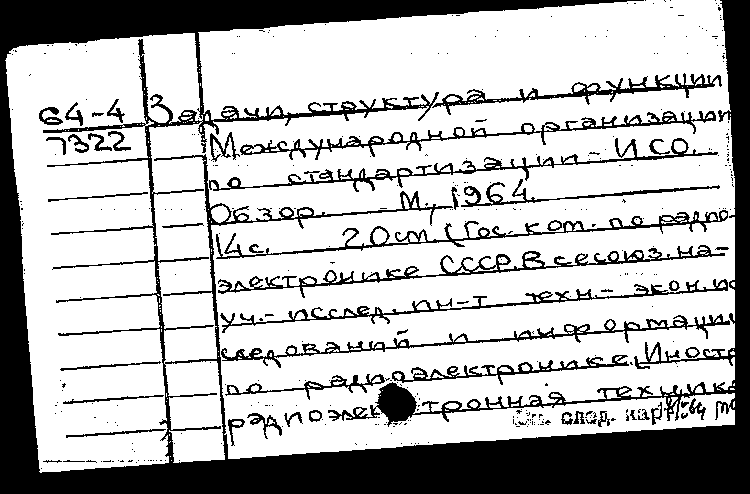 64-4 Задачи, структура и функции
7322 Международной организации
по стандартизации - ИСО.
Обзор. - М., 1964.
14с. 20 см. (Гос. ком. по радио-
электронике СССР. Всесоюз. на-
уч.- исслед. ин-т техн.- экон. ис
следований и информации
по радиоэлектронике. Иностр
радиоэлектронная техника
См. след. кар